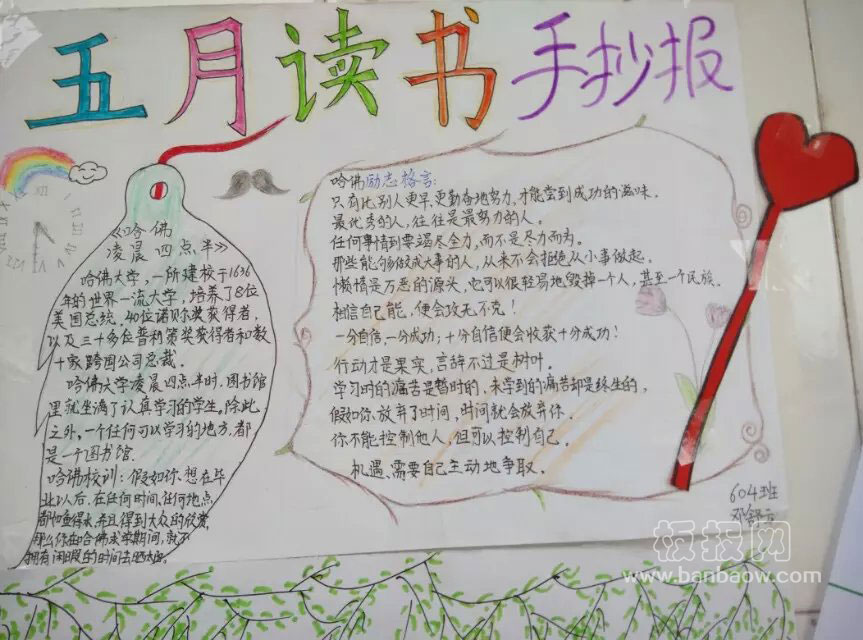 五月读书手抄报
《哈佛
凌晨四点半》
哈佛大学，一所建校于1636
年的世界一流大学，培养了8位
美国总统，40位诺贝尔奖获得者，
以及三十多位普利策奖获得者和数
十家跨国公司总裁。
哈佛大学凌晨四点半时，图书馆
里就坐满了认真学习的学生。除此
之外，一个任何可以学习的地方，都
是一个图书馆
哈佛校训：假如你想在毕
业以后，在任何时间，任何地点
都如鱼得水，并且得到大众的欣赏，
那么你在哈佛求学期间，就不
拥有闲暇的时间去晒太阳。
哈佛励志格言：
只有比别人更早、更勤奋地努力，才能尝到成功的滋味。
最优秀的人，往往是最努力的人。
任何事情到要竭尽全力，而不是尽力而为。
那些能够做成大事的人，从来不会拒绝从小事做起。
懒惰是万恶的源头，也可以很轻易地毁掉一个人，甚至一个民族。
相信自己能，便会攻无不克！
一分自信，一分成功；十分自信便会收获十分成功！
行动才是果实，言辞不过是树叶。
学习时的痛苦是暂时的，未学到的痛苦却是终生的。
假如你放弃了时间，时间就会放弃你。
你不能控制他人，但可以控制自己。
机遇、需要自己主动地争取。
604班
邓舒
板报网
www.banbaow.com